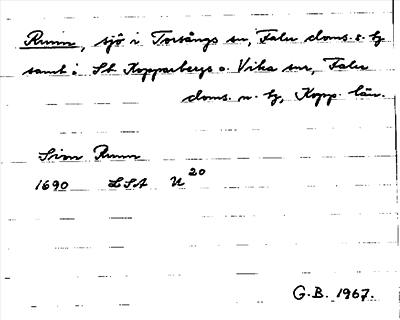 Runn, sjö i Torsångs sn, Falu doms. s. tg
samt i St. Kopparbergs o. Vika snr, Falu
doms. n. tg, Kopp. län.
Sion Runn
1690 LSA U 20
G.B. 1967.